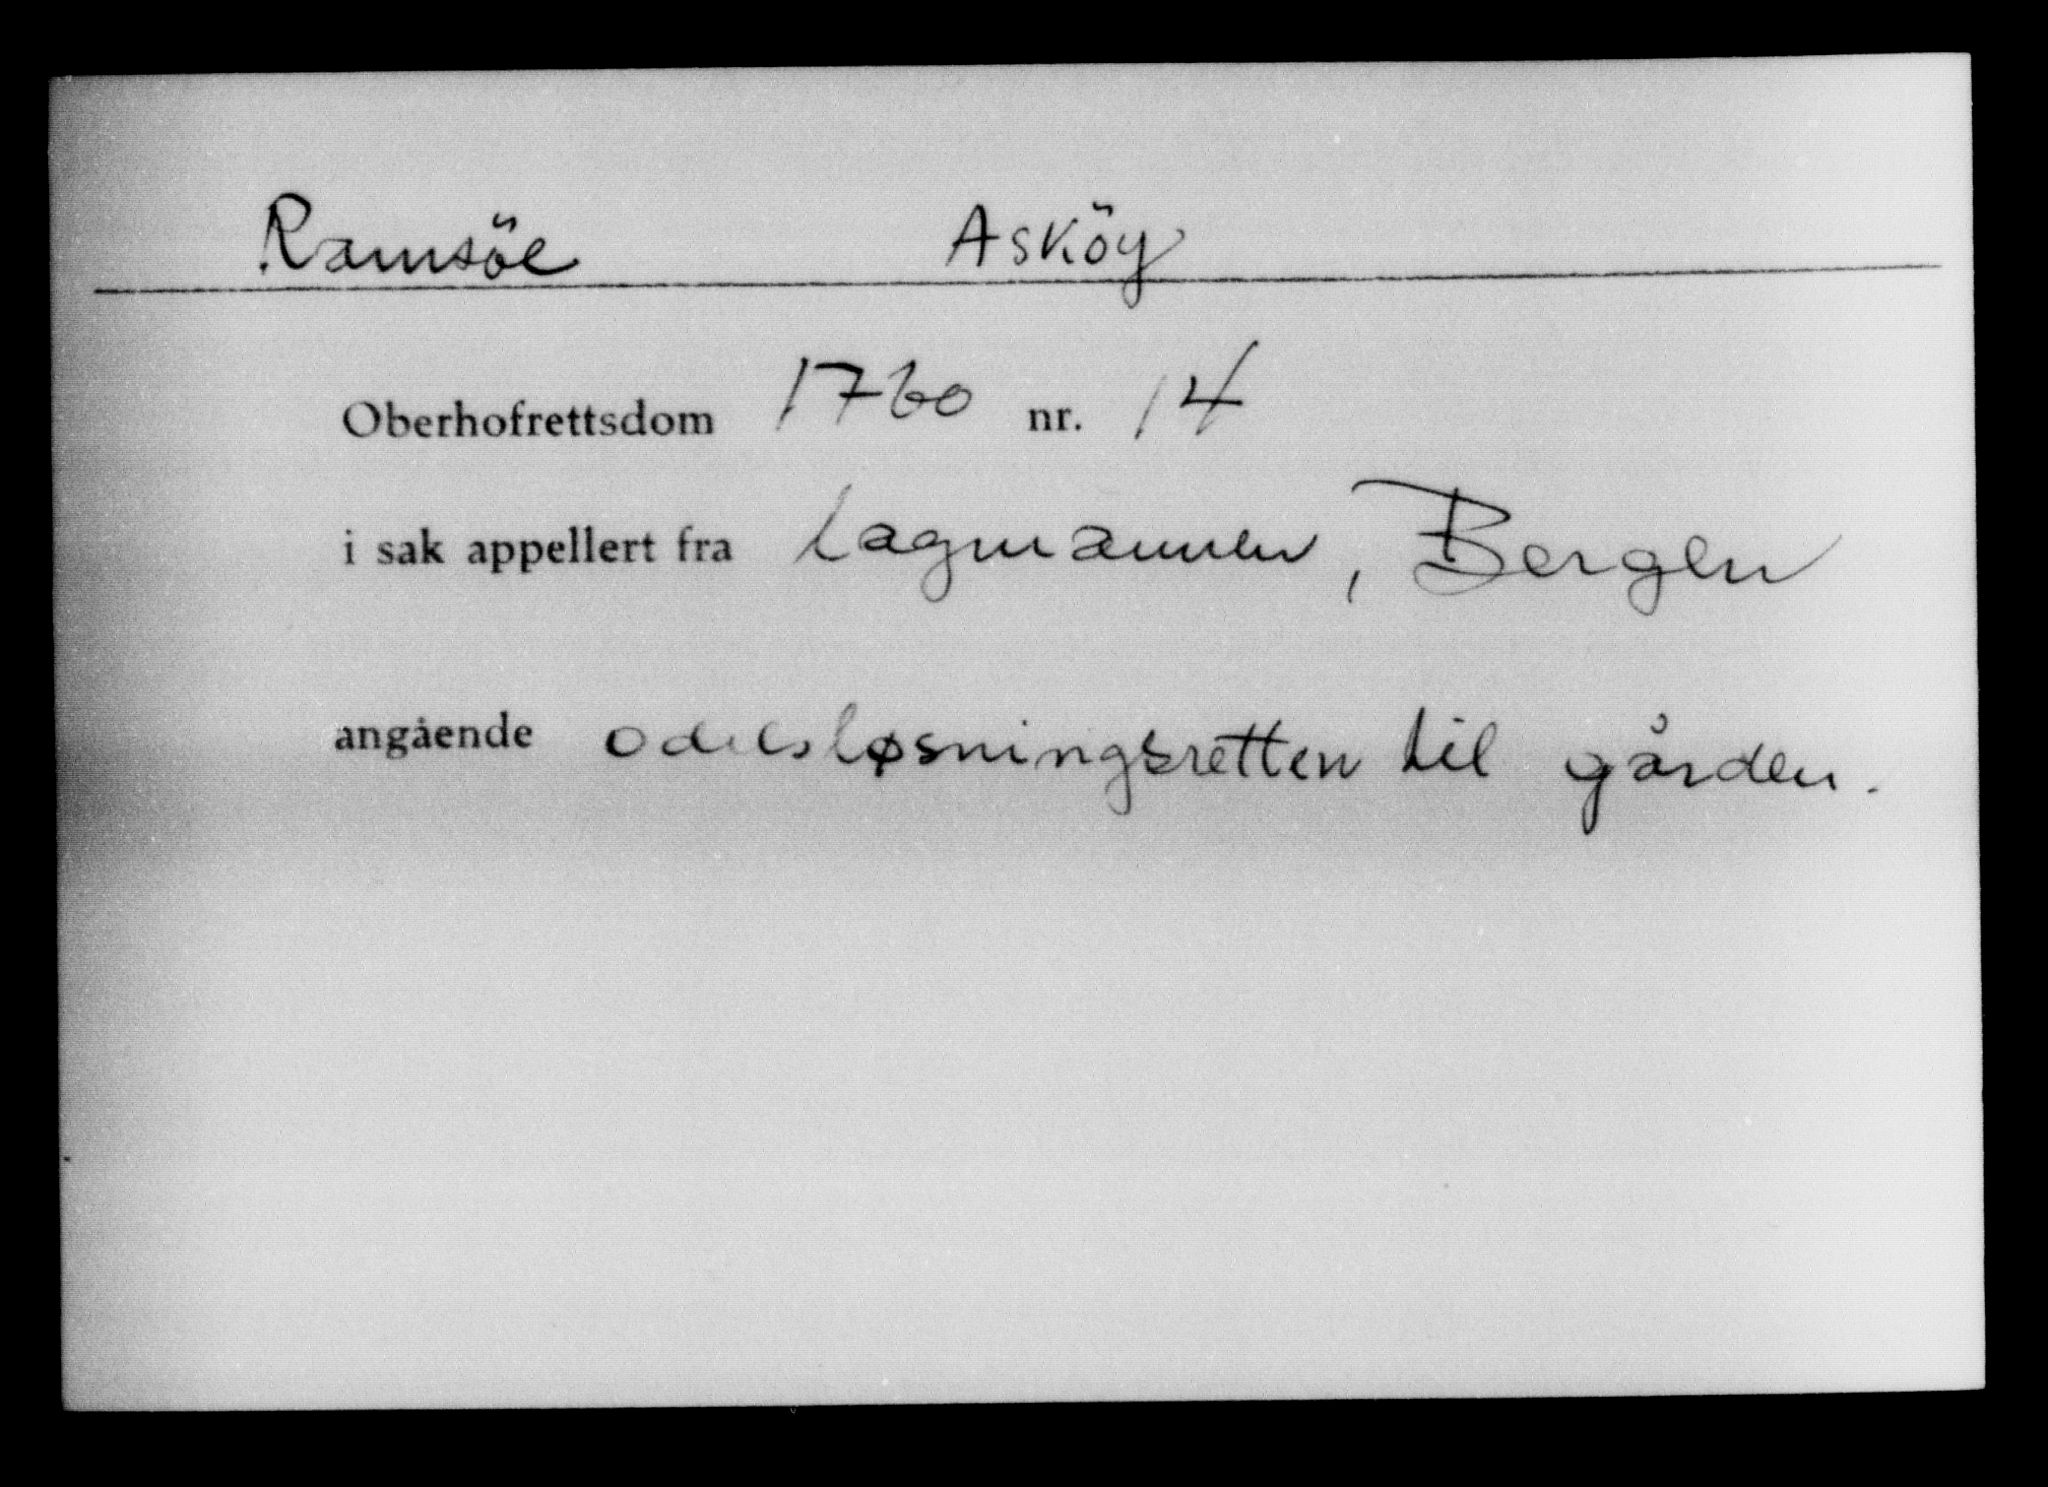 Ramsöe Asköy
Oberhofrettsdom 1760 nr. 14
i sak appellert fra Lagmannen, Bergen
angående odelsløsningsretten til gården.